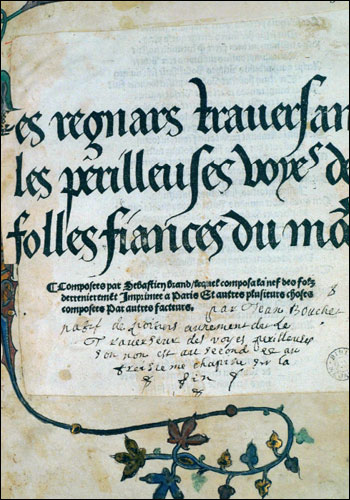 es regnars traversan
les perilleuses voyes de
folles fiances du mo
Composees par Sebastien brand/lequel composa la nef des folz
derrenierement Imprimee a Paris Et autres plusieurs choses
composees Par autres facteurs.
par Jean Bouchet
natif de poitiers autrement dit le
Traverseur des voyes perilleuses
son non est au second et au
troisieme chapitre sur la
fin